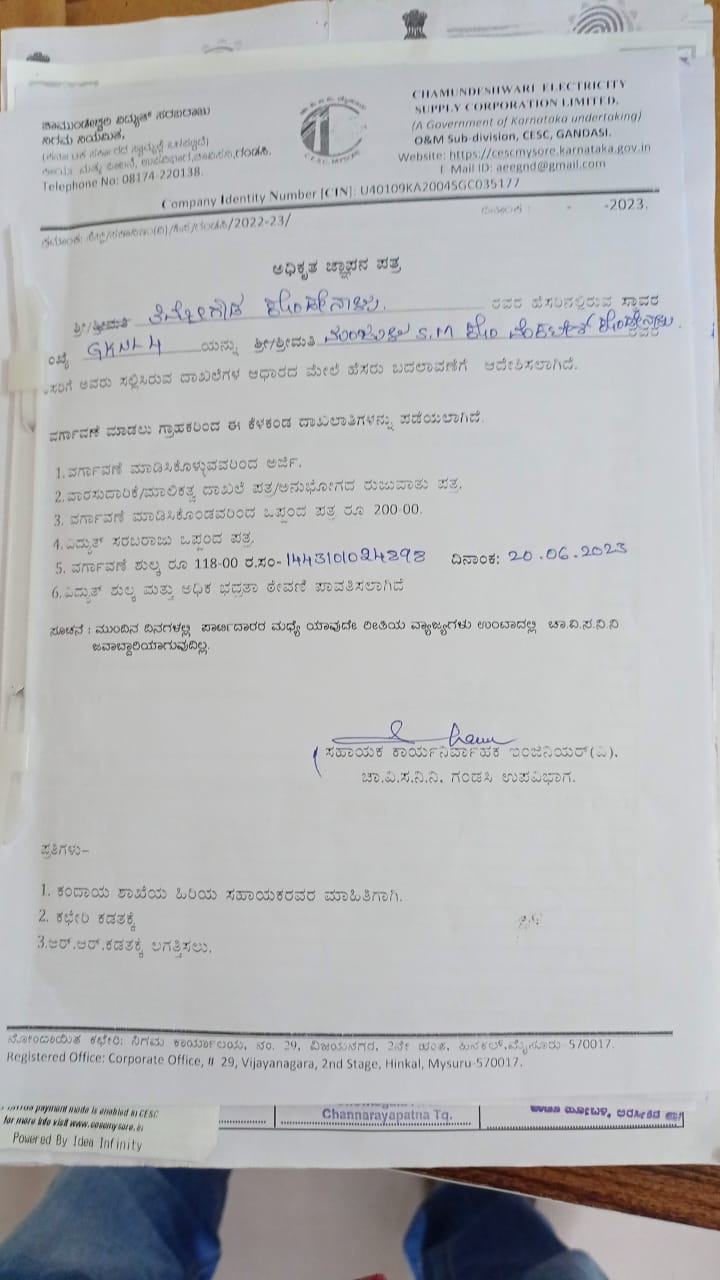 ಚಾಮುಂಡೇಶ್ವರಿ ವಿದ್ಯುತ್ ಸರಬರಾಜು
ನಿಗಮ ನಿಯಮಿತ,
Telephone No: 08174-220138.
CESC MYSORE
CHAMUNDESHWARI ELECTRICITY
SUPPLY CORPORATION LIMITED,
(A Government of Karnataka undertaking)
O&M Sub-division, CESC, GANDASI.
Website: https://cescmysore.karnataka.gov.in
E Mail ID: aeegnd@gmail.com
Company Identity Number [CIN]: U40109KA2004SGC035177
/2022-23/
ದಿನಾಂಕ : - -2023.
ಅಧಿಕೃತ ಜ್ಞಾಪನ ಪತ್ರ
ಶ್ರೀ/ಶ್ರೀಮತಿ ರವರ ಹೆಸರಿನಲ್ಲಿರುವ ಸ್ಥಾವರ
ಂಖ್ಯೆ GKNL4 ಯನ್ನು ಶ್ರೀ/ಶ್ರೀಮತಿ ಮಂಜುಳ S.M ಕೋಂ ರವರ
ಸರಿಗೆ ಅವರು ಸಲ್ಲಿಸಿರುವ ದಾಖಲೆಗಳ ಆಧಾರದ ಮೇಲೆ ಹೆಸರು ಬದಲಾವಣೆಗೆ ಆದೇಶಿಸಲಾಗಿದೆ.
ವರ್ಗಾವಣೆ ಮಾಡಲು ಗ್ರಾಹಕರಿಂದ ಈ ಕೆಳಕಂಡ ದಾಖಲಾತಿಗಳನ್ನು ಪಡೆಯಲಾಗಿದೆ.
1.ವರ್ಗಾವಣೆ ಮಾಡಿಸಿಕೊಳ್ಳುವವರಿಂದ ಅರ್ಜಿ.
2.ವಾರಸುದಾರಿಕೆ/ಮಾಲಿಕತ್ವ ದಾಖಲೆ ಪತ್ರ/ಅನುಭೋಗದ ರುಜುವಾತು ಪತ್ರ.
3. ವರ್ಗಾವಣೆ ಮಾಡಿಸಿಕೊಂಡವರಿಂದ ಒಪ್ಪಂದ ಪತ್ರ ರೂ 200-00.
4.ವಿದ್ಯುತ್ ಸರಬರಾಜು ಒಪ್ಪಂದ ಪತ್ರ.
5. ವರ್ಗಾವಣೆ ಶುಲ್ಕ ರೂ 118-00 ರ.ಸಂ-1443101024898 ದಿನಾಂಕ: 20.06.2023
6.ವಿದ್ಯುತ್ ಶುಲ್ಕ ಮತ್ತು ಅಧಿಕ ಭದ್ರತಾ ಠೇವಣಿ ಪಾವತಿಸಲಾಗಿದೆ
ಸೂಚನೆ : ಮುಂದಿನ ದಿನಗಳಲ್ಲಿ ಪಾರ್ಟಿದಾರರ ಮಧ್ಯೆ ಯಾವುದೇ ರೀತಿಯ ವ್ಯಾಜ್ಯಗಳು ಉಂಟಾದಲ್ಲಿ ಚಾ.ವಿ.ಸ.ನಿ.ನಿ
ಜವಾಬ್ದಾರಿಯಾಗುವುದಿಲ್ಲ.
ಸಹಾಯಕ ಕಾರ್ಯನಿರ್ವಾಹಕ ಇಂಜಿನಿಯರ್(ವಿ).
ಚಾ.ವಿ.ಸ.ನಿ.ನಿ. ಗಂಡಸಿ ಉಪವಿಭಾಗ.
ಪ್ರತಿಗಳು-
1. ಕಂದಾಯ ಶಾಖೆಯ ಹಿರಿಯ ಸಹಾಯಕರವರ ಮಾಹಿತಿಗಾಗಿ.
2. ಕಛೇರಿ ಕಡತಕ್ಕೆ
3.ಆರ್.ಆರ್.ಕಡತಕ್ಕೆ ಲಗತ್ತಿಸಲು.
ನೋಂದಾಯಿತ ಕಛೇರಿ: ನಿಗಮ ಕಾರ್ಯಾಲಯ, ನಂ. 29, ವಿಜಯನಗರ, 2ನೇ ಹಂತ, ಹಿನಕಲ್,ಮೈಸೂರು-570017.
Registered Office: Corporate Office, # 29, Vijayanagara, 2nd Stage, Hinkal, Mysuru-570017.
payment mode is enabled in CESC
for more info visit www.cescmysore.in
Powered By Idea Infinity
Channarayapatna Tq.